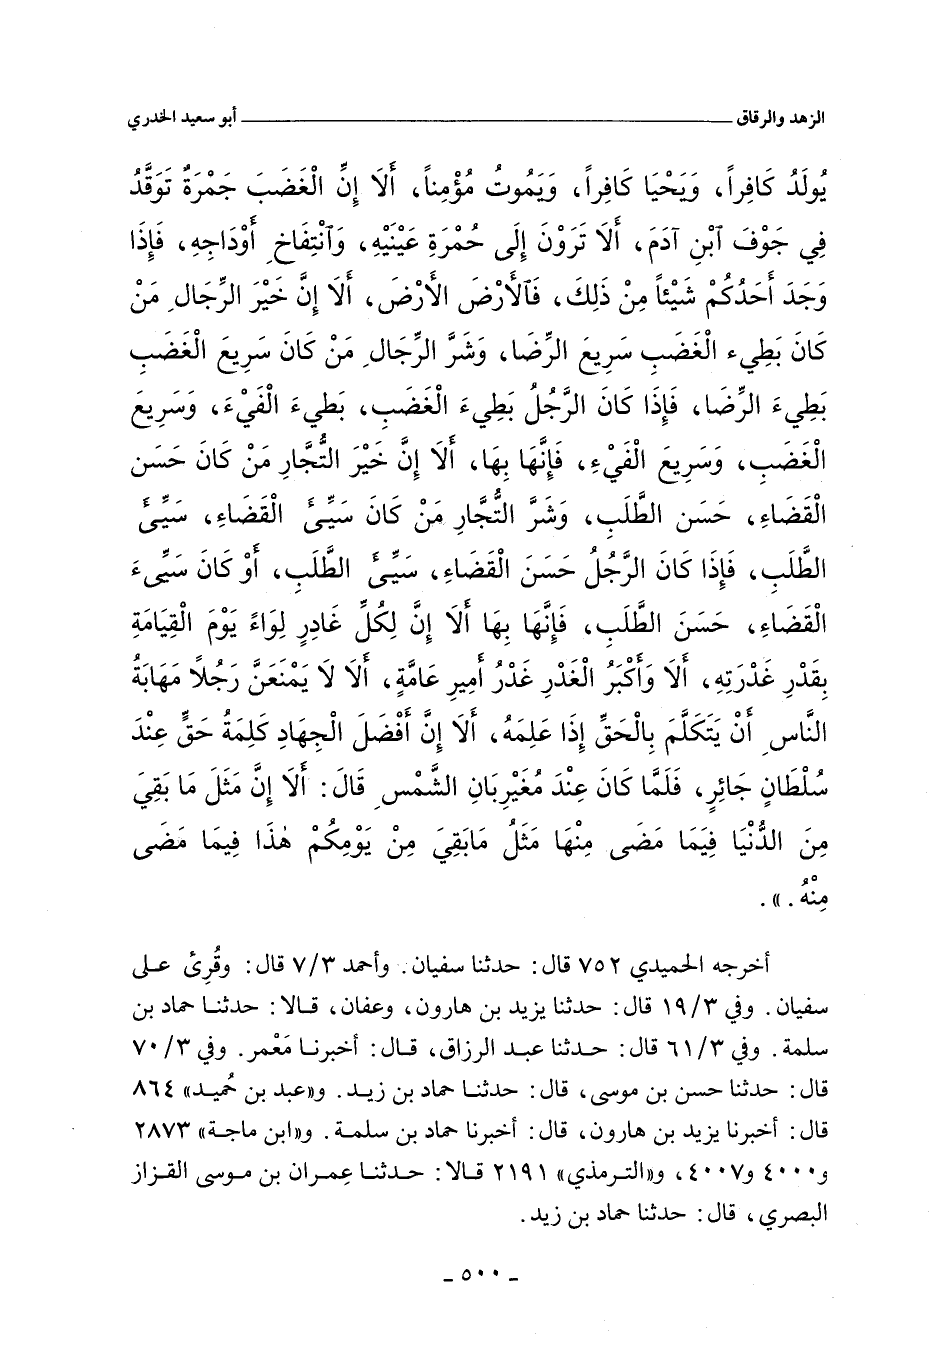 الزهد والرقاق ــــــــــــــــــــ أبو سعيد الخدري
يُولَدُ كَافِراً، وَيَحْيَا كَافِراً، وَيَمُوتُ مُؤْمِناً، أَلَا إِنَّ الْغَضَبَ جَمْرَةٌ تَوَقَّدُ
فِي جَوْفَ آبْنِ آدَمَ، أَلَا تَرَوْنَ إِلَى حُمْرَةِ عَيْنَيْهِ، وَآنْتِفَاخِ أَوْدَاجِهِ، فَإِذَا
وَجَدَ أَحَدُكُمْ شَيْئاً مِنْ ذَلِكَ، فَآلأَرْضَ الأَرْضَ، أَلَا إِنَّ خَيْرَ الرِّجَالِ مَنْ
كَانَ بَطِيء الْغَضَبِ سَرِيعَ الرِّضَا، وَشَرَّ الرِّجَالِ مَنْ كَانَ سَرِيعَ الْغَضَبِ
بَطِيءَ الرِّضَا، فَإِذَا كَانَ الرَّجُلُ بَطِيءَ الْغَضَبِ، بَطِيءَ الْفَيْءَ، وَسَرِيعَ
الْغَضَبِ، وَسَرِيعَ الْفَيْءِ، فَإِنَّهَا بِهَا، أَلَا إِنَّ خَيْرَ التُّجَّارِ مَنْ كَانَ حَسَن
الْقَضَاءِ، حَسَن الطَّلَبِ، وَشَرَّ التُّجَّارِ مَنْ كَانَ سَيِّئَ الْقَضَاءِ، سَيِّئَ
الطَّلَبِ، فَإِذَا كَانَ الرَّجُلُ حَسَنَ الْقَضَاءِ، سَيِّئَ الطَّلَبِ، أَوْ كَانَ سَيِّىءَ
الْقَضَاءِ، حَسَنَ الطَّلَبِ، فَإِنَّهَا بِهَا أَلَا إِنَّ لِكُلِّ غَادِرٍ لِوَاءً يَوْمَ الْقِيَامَةِ
بِقَدْرِ غَدْرَتِهِ، أَلَا وَأَكْبَرُ الْغَدْرِ غَدْرُ أَمِيرِ عَامَّةٍ، أَلَا لَا يَمْنَعَنَّ رَجُلاً مَهَابَةُ
النَّاسِ أَنْ يَتَكَلَّمَ بِالْحَقِّ إِذَا عَلِمَهُ، أَلَا إِنَّ أَفْضَلَ الْجِهَادِ كَلِمَةُ حَقٍّ عِنْدَ
سُلْطَانٍ جَائِرٍ، فَلَمَّا كَانَ عِنْدَ مُغَيْرِبَانِ الشَّمْسِ قَالَ: أَلَا إِنَّ مَثَلَ مَا بَقِيَ
مِنَ الدُّنْيَا فِيَمَا مَضَى مِنْهَا مَثَلُ مَابَقِيَ مِنْ يَوْمِكُمْ هٰذَا فِيمَا مَضَى
مِنْهُ.».
أخرجه الحميدي ٧٥٢ قال: حدثنا سفيان. وأحمد ٧/٣ قال: وقُرِئَ على
سفيان. وفي ١٩/٣ قال: حدثنا يزيد بن هارون، وعفان، قالا: حدثنا حماد بن
سلمة. وفي ٦١/٣ قال: حدثنا عبد الرزاق، قال: أخبرنا مَعْمر. وفي ٧٠/٣
قال: حدثنا حسن بن موسى، قال: حدثنا حماد بن زيد. و«عبد بن حُميد» ٨٦٤
قال: أخبرنا يزيد بن هارون، قال: أخبرنا حماد بن سلمة. و«ابن ماجة» ٢٨٧٣
و٤٠٠٠ و٤٠٠٧، و«الترمذي» ٢١٩١ قالا: حدثنا عِمران بن موسى القزاز
البصري، قال: حدثنا حماد بن زيد.
- ٥٠٠ -